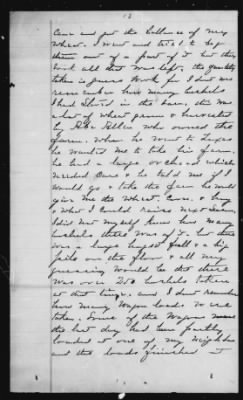 13
Came and got the ballance of my
wheat. I went and tried to keep
them out of a part of it but they
took all that was left, the quantity
taken is guess work for I dont
remember how many bushels
I had stored in the barn, this was
a lot of wheat grown & harvested
by who owned the
farm. When he went to
he wanted me to take his farm.
he had a large orchard which
needed care & he told me if I
would go & take the farm he would
give me the wheat. Corn. & hay
& what I could raise
I did not myself know how many
bushels there was of it. but there
was a large full & a big
pile on the floor & all my
guessing would be that there
was over 200 bushels taken
at that time. and I dont remember
how many wagon loads were
taken. Some of the wagons were
the last day had been partly
loaded at one of my neighbors
and the loads finished